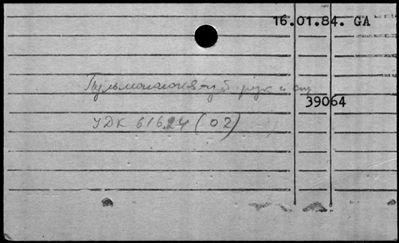 16.01.84. GA
Пульмонология
39064
УДК 616.24 (02)